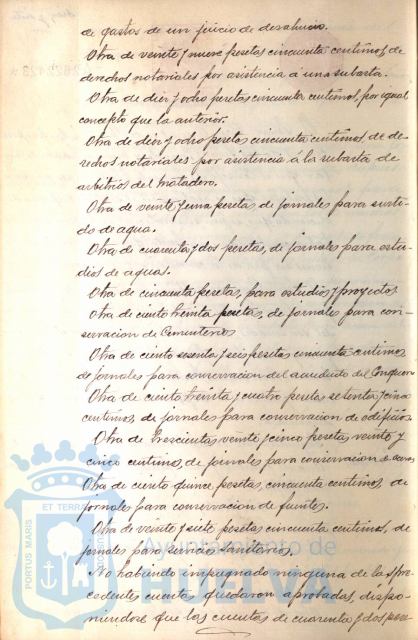 de gastos de un juicio de desahucio.
Otra de veinte y nueve pesetas cincuenta centimos, de
derechos notariales por asistencia a una subasta.
Otra de diez y ocho pesetas cincuenta centimos, por igual
concepto que la anterior.
Otra de diez y ocho pesetas cincuenta centimos, de de-
rechos notariales por asistencia á la subasta de
arbitrios del Matadero.
Otra de veinte y una pesetas, de jornales para surti-
do de agua.
Otra de cuarenta y dos pesetas, de jornales para estu-
dios de aguas.
Otra de cincuenta pesetas, para estudios y proyectos
Otra de ciento treinta pesetas, de jornales para con-
servacion de Cementerios
Otra de ciento sesenta y seis pesetas cincuenta centimos,
de jornales para conservacion del acueducto del Conquero
Otra de ciento treinta y cuatro pesetas setenta y cinco
centimos, de jornales para conservacion de edificios.
Otra de trescientas veinte y cinco pesetas veinte y
cinco centimos, de jornales para conservacion de
Otra de ciento quince pesetas, cincuenta centimos, de
jornales para conservacion de fuentes.
Otra de veinte y siete pesetas cincuenta centimos, de
jornales para servicios sanitarios.
No habiendo impugnado ninguna de las pre-
cedentes cuentas quedaron aprobadas, dispo-
niendose que las cuentas de cuarenta y dos pese-
PORTUS MARIS ET TERRAE
Ayuntamiento de
HUELVA